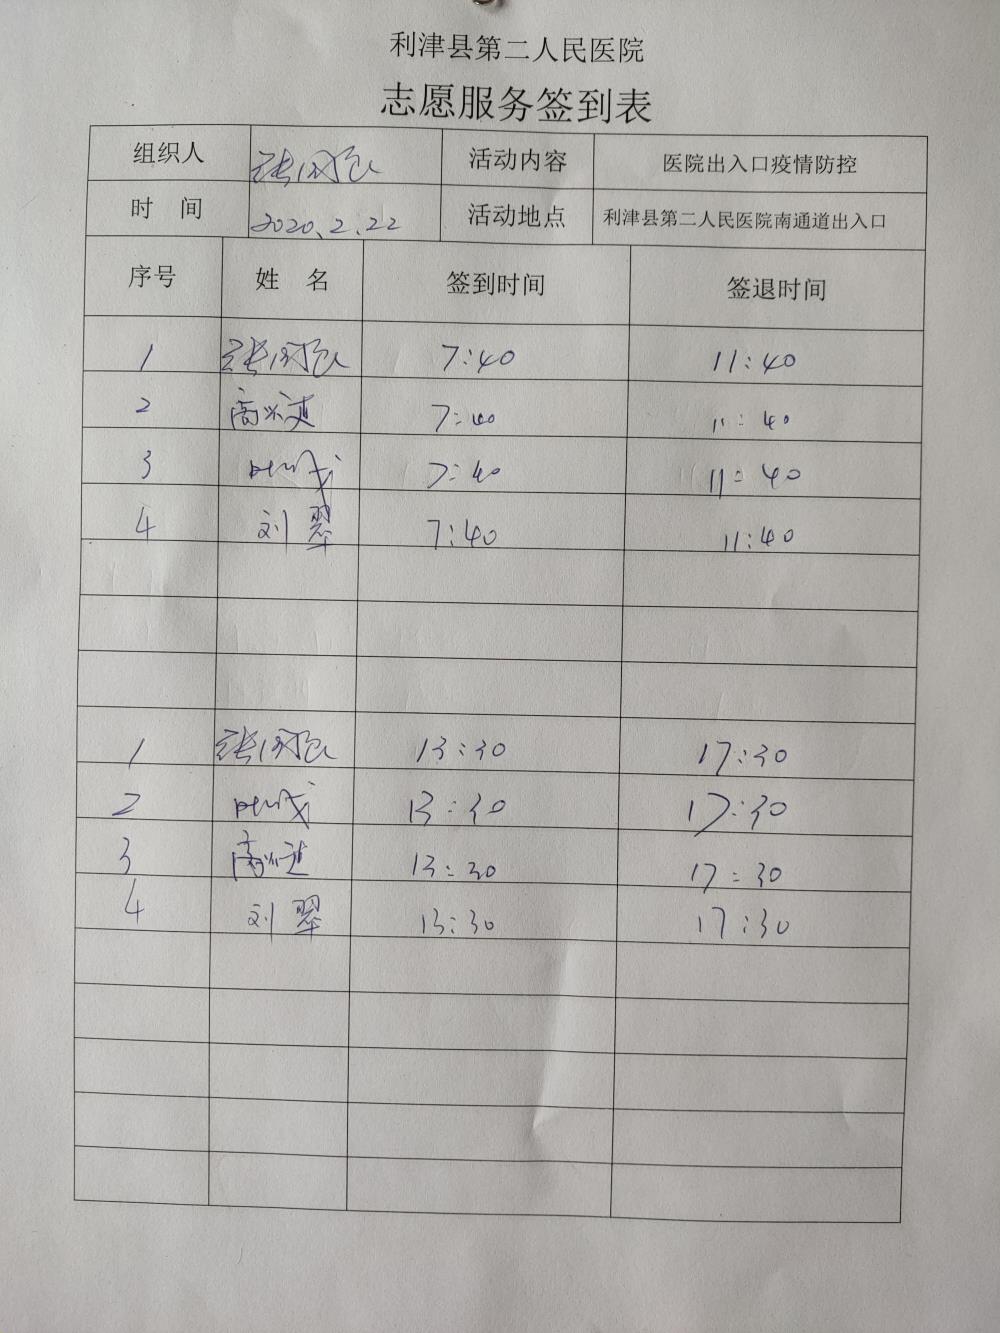 利津县第二人民医院
志愿服务签到表
组织人 活动内容 医院出入口疫情防控
时 间 2020.2.22 活动地点 利津县第二人民医院南通道出入口
序号 姓 名 签到时间 签退时间
1 7:40 11:40
2 7:40 11:40
3 7:40 11:40
4 刘翠 7:40 11:40
1 13:30 17:30
2 13:30 17:30
3 13:30 17:30
4 刘翠 13:30 17:30